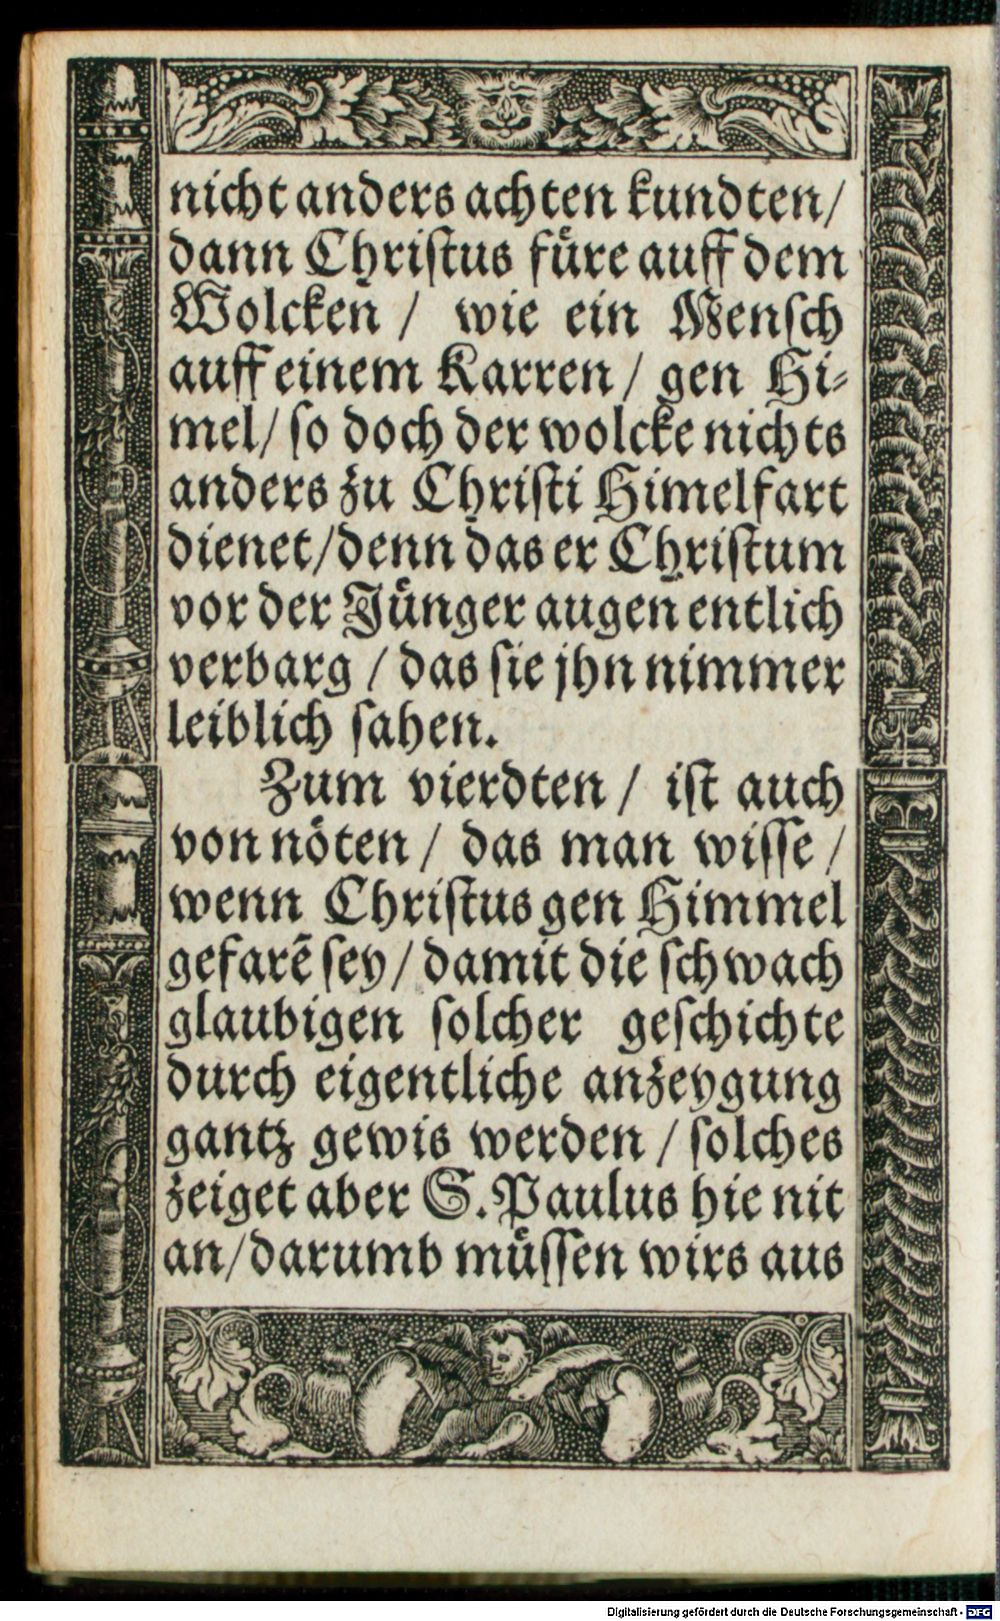 nicht anders achten kundten/
dann Christus fuͤre auff dem
Wolcken / wie ein Mensch
auff einem Karren / gen Hi⸗
mel/ so doch der wolcke nichts
anders zu Christi Himelfart
dienet/denn das er Christum
vor der Juͤnger augen entlich
verbarg / das sie jhn nimmer
leiblich sahen.
Zum vierdten / ist auch
von noͤten / das man wisse /
wenn Christus gen Himmel
gefarē sey/ damit die schwach
glaubigen solcher geschichte
durch eigentliche anzeygung
gantz gewis werden / solches
zeiget aber S. Paulus hie nit
an/darumb muͤssen wirs aus
Digitalisierung gefördert durch die Deutsche Forschungsgemeinschaft - DFG